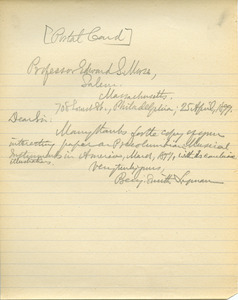 [Postal Card]
Professor Edward S. Morse,
Salem,
Massachusetts.
708 Locust St., Philadelphia, 25 April, 1899.
Dear Sir:
Many thanks for the copy of your
interesting paper on Precolumbian Musical
Instruments in America, March, 1899, with its
illustrations.
Very truly yours,
Benj. Smith Lyman